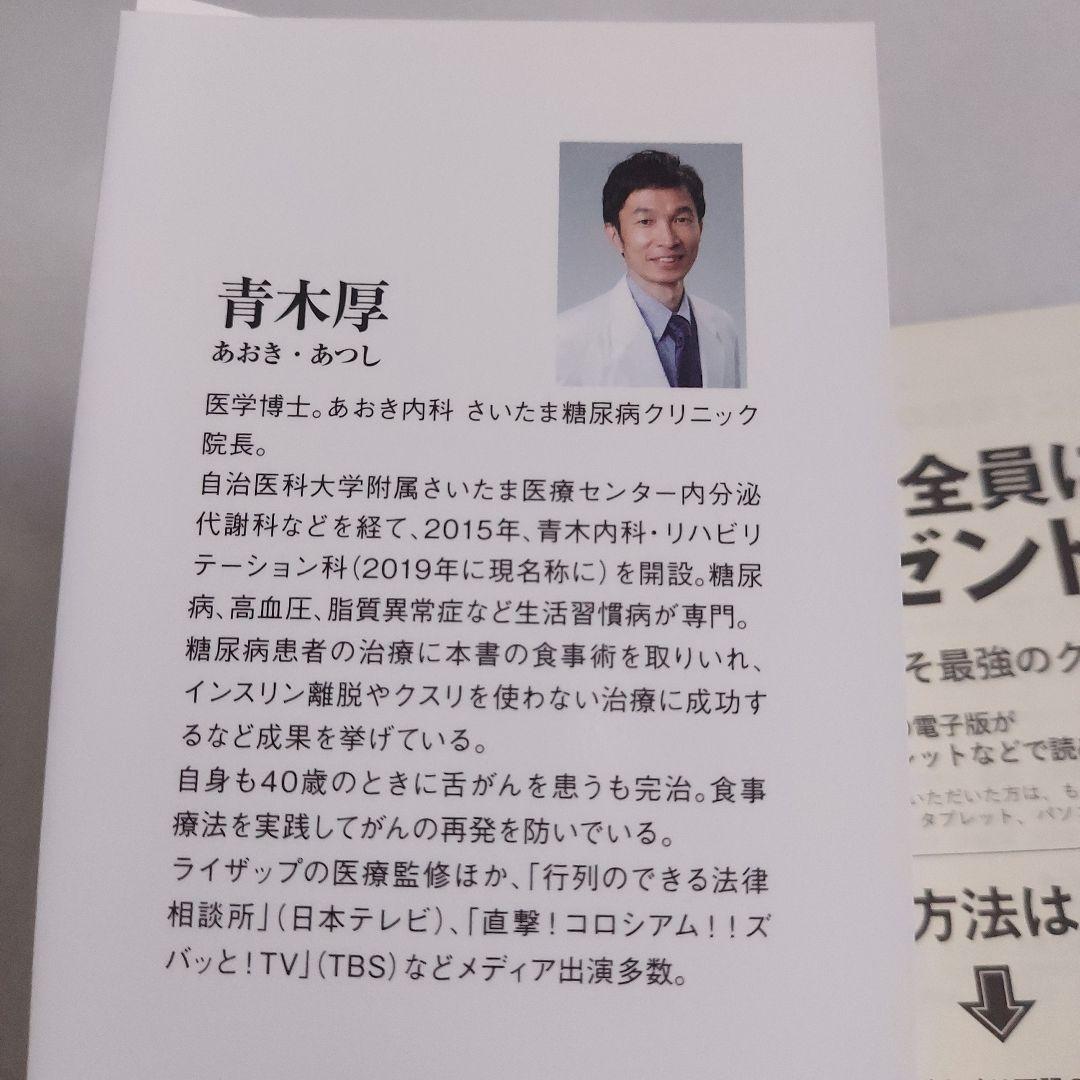 青木厚
あおき・あつし
医学博士。あおき内科 さいたま糖尿病クリニック
院長。
自治医科大学附属さいたま医療センター内分泌
代謝科などを経て、2015年、青木内科・リハビリ
テーション科(2019年に現名称に)を開設。糖尿
病、高血圧、脂質異常症など生活習慣病が専門。
糖尿病患者の治療に本書の食事術を取りいれ、
インスリン離脱やクスリを使わない治療に成功す
るなど成果を挙げている。
自身も40歳のときに舌がんを患うも完治。食事
療法を実践してがんの再発を防いでいる。
ライザップの医療監修ほか、「行列のできる法律
相談所」(日本テレビ)、「直撃!コロシアム!!ズ
バッと!TV」(TBS)などメディア出演多数。
全員に
ゼント
そ最強のク
電子版が
レットなどで読
いただいた方は、も
タブレット、パソ
方法は